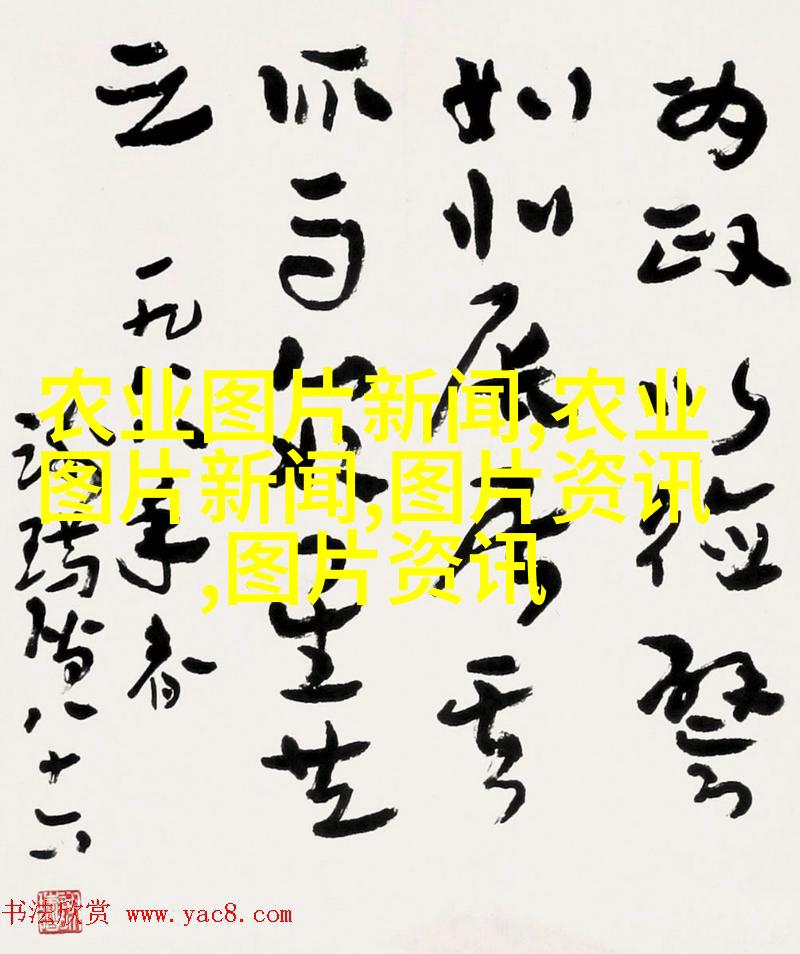 为政以德譬
如北辰居其
所而众星共
之
年春
八十六
农业图片新闻,农业
图片新闻,图片资讯
,图片资讯
书法欣赏 www.yac8.com